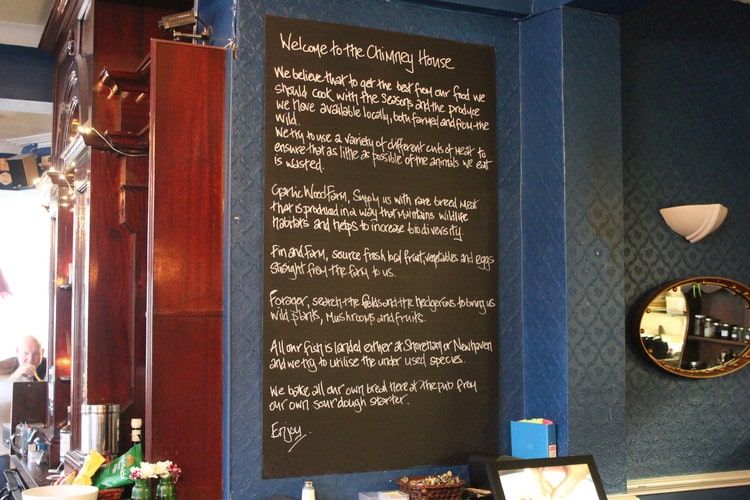 Welcome to the Chimney House
We believe that to get the best from our food we
should cook with the seasons and the produce
we have available locally, both farmed and from the
wild.
We try to use a variety of different cuts of meat to
ensure that as little as possible of the animals we eat
is wasted.
Garlic Wood Farm, supply us with rare breed meat
that is produced in a way that maintains wildlife
habitats and helps to increase biodiversity.
Fin and Farm, source fresh local fruit, vegetables and eggs
straight from the farm to us.
Forager, search the fields and the hedgerows to bring us
wild plants, mushrooms and fruits.
All our fish is landed either at Shoreham or Newhaven
and we try to utilise the under used species.
We bake all our own bread here at the pub from
our own sour dough starter.
Enjoy.